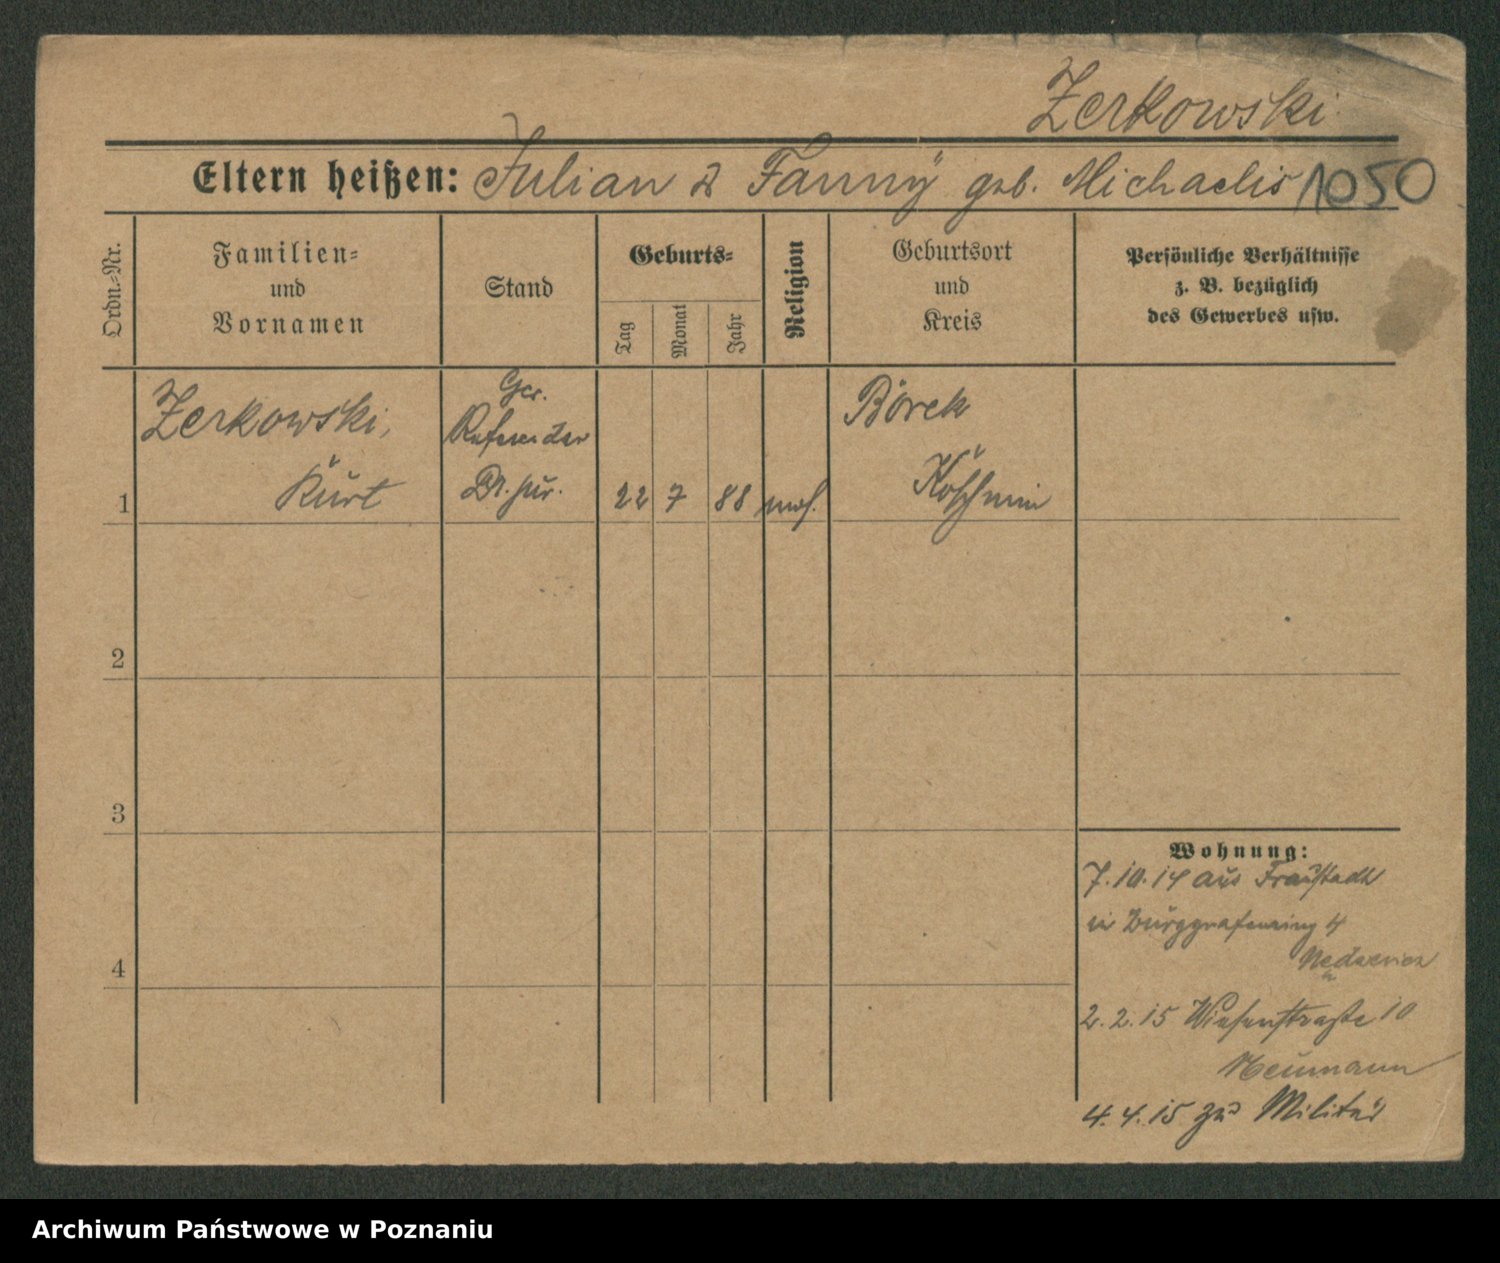 Zerkowski
Eltern heißen: Julian & Fanny geb. Michaelis 1050
Ordn.-Nr.
Familien-
und
Vornamen
Stand
Geburts-
Tag
Monat
Jahr
Religion
Geburtsort
und
Kreis
Persönliche Verhältnisse
z. B. bezüglich
des Gewerbes usw.
1
Zerkowski,
Kurt
Ger.
Referendar
Dr. jur.
22 7 88 mos.
Borek
Koschmin
2
3
4
Wohnung:
7.10.14 aus Fraustadt
in Burggrafenring 4
2.2.15 Wiesenstraße 10
Neumann
4.4.15 zum Militär
Archiwum Państwowe w Poznaniu